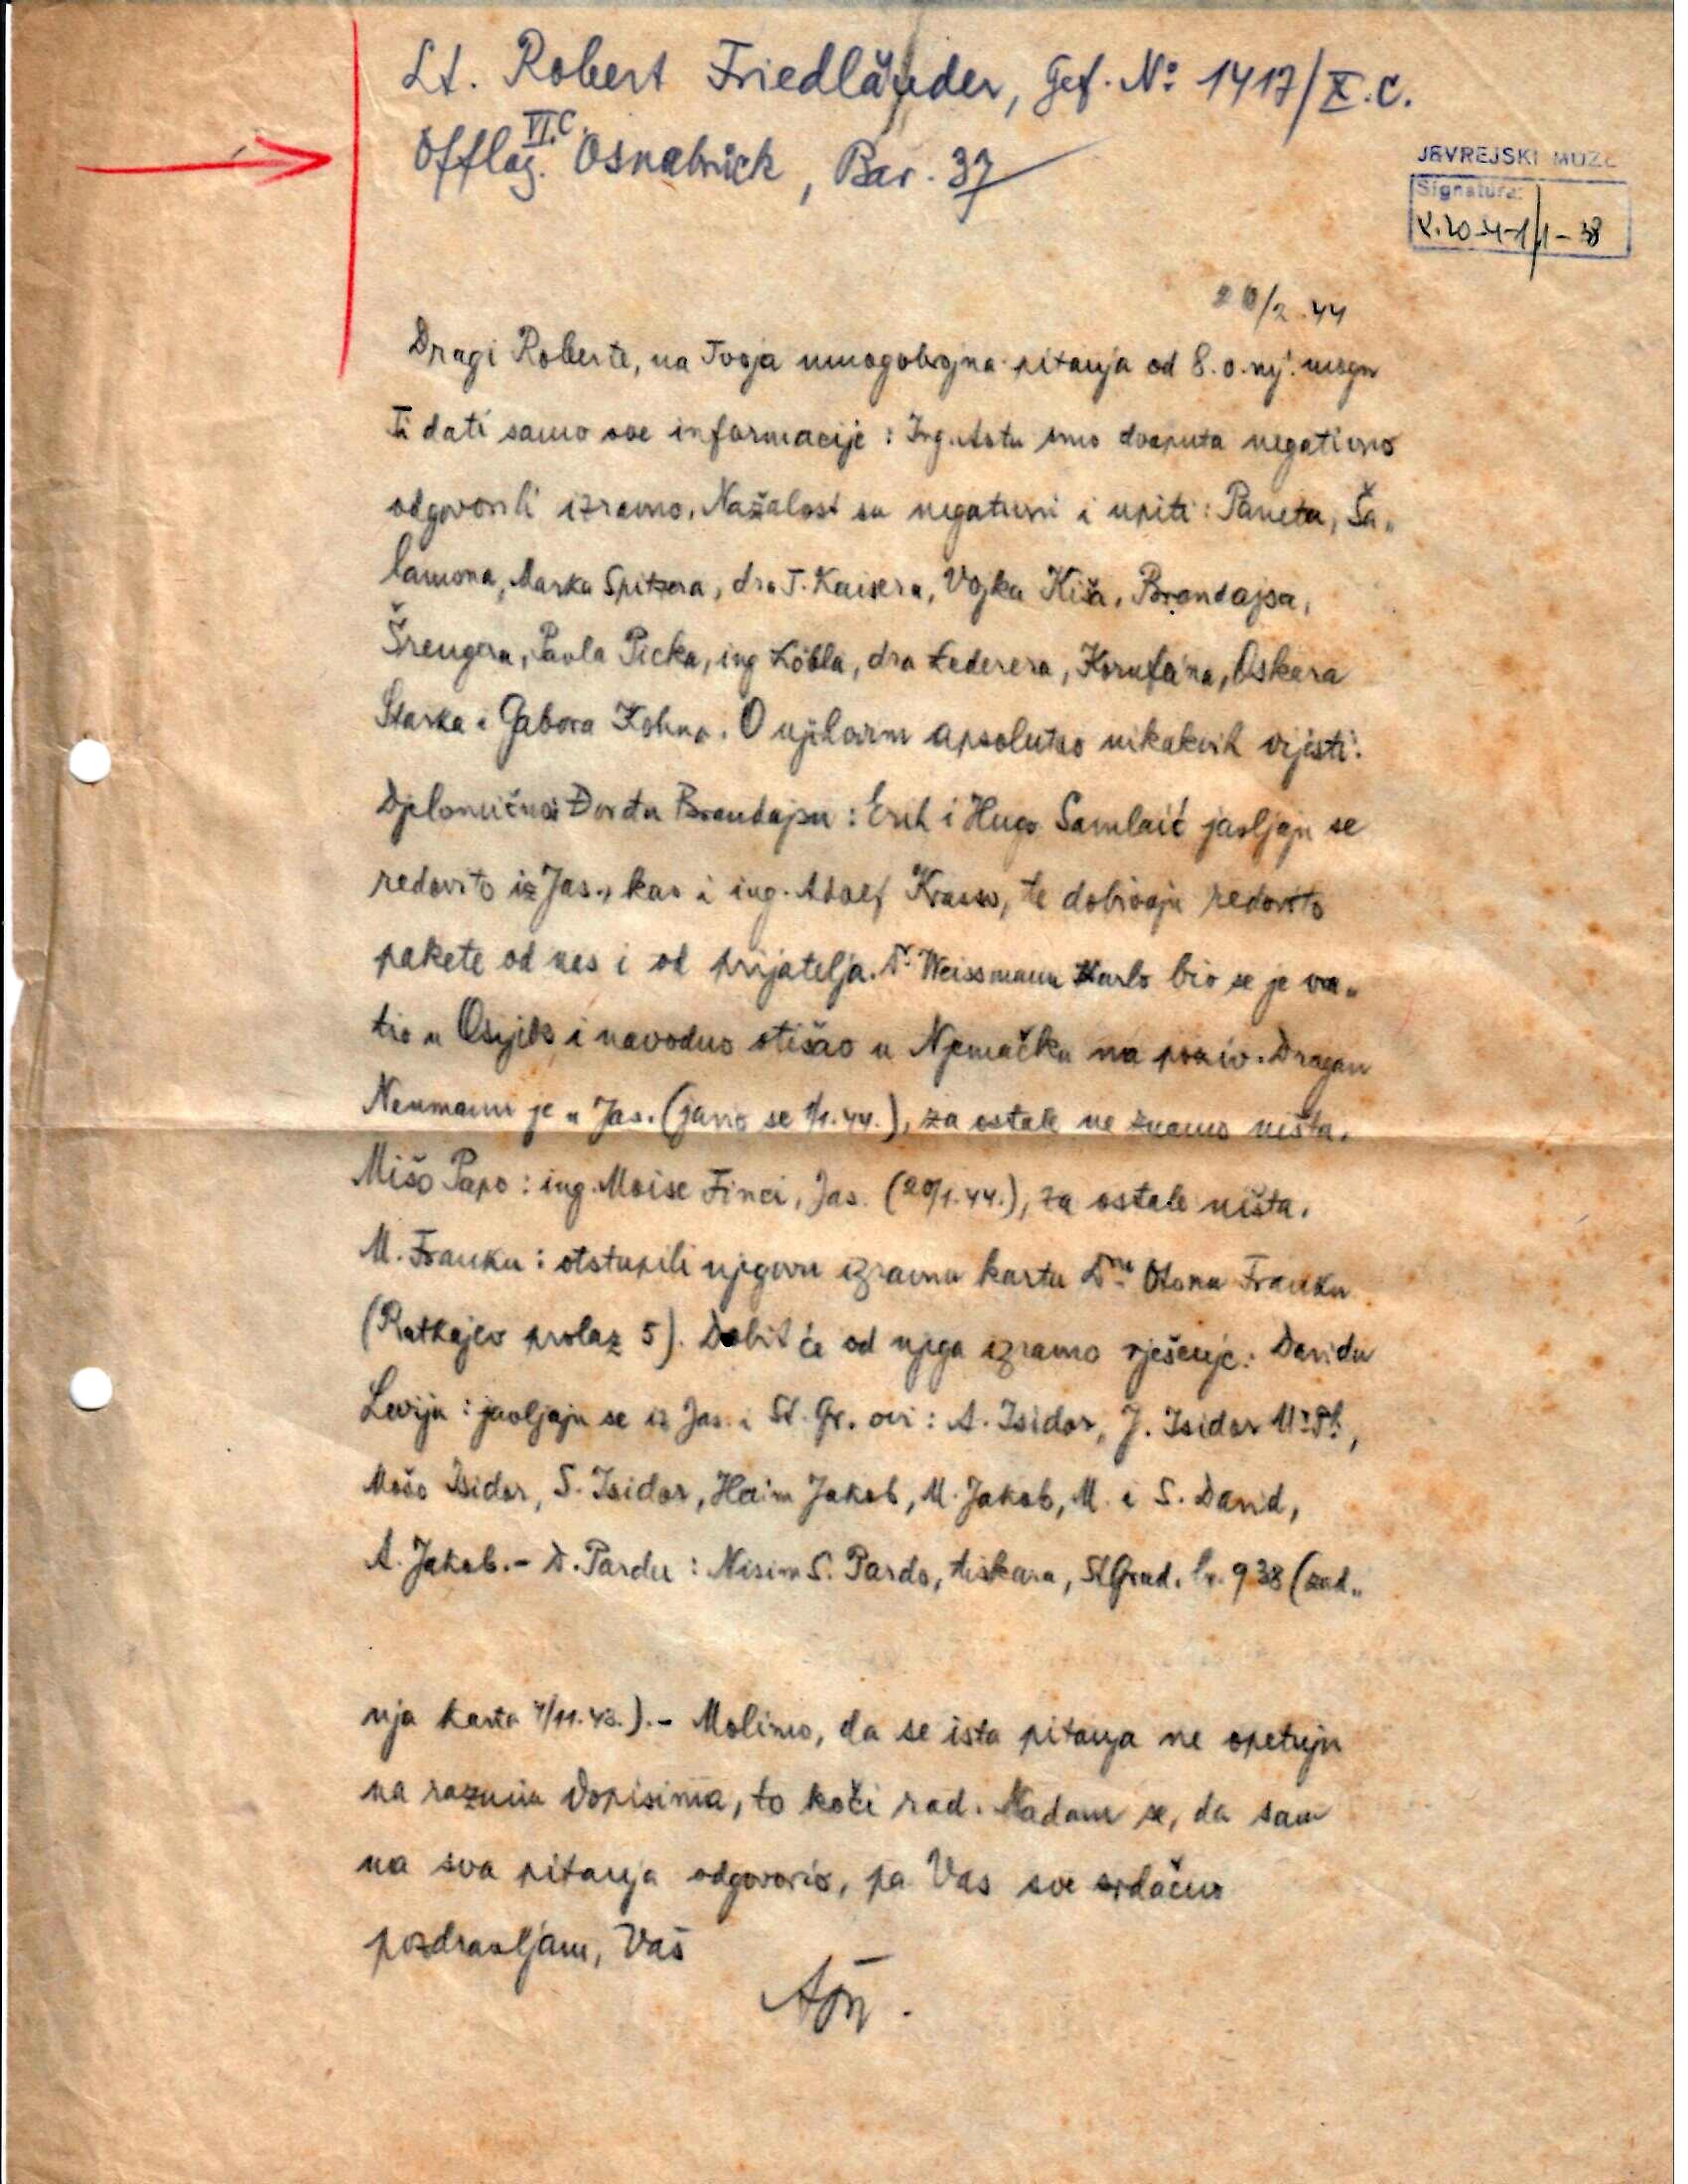 Lt. Robert Friedländer, Gef. No 1417/X.C.
VI.C.
Offlag. Osnabrück, Bar. 37
JEVREJSKI MUZE
Signatura:
20/2.44
Dragi Roberte, na Tvoja mnogobrojna pitanja od 8. o. mj. mogu
Ti dati samo ove informacije : Ing. smo dvaputa negativno
odgovorili izravno. Nažalost su negativni i upiti : Paneta, Ša„
lamona, Marka Spitzera, dra J. Kaisera, Vojka Kiša, Brandajsa,
Šrengera, Pavla Picka, ing Löbla, dra Lederera, Korufana, Oskara
Starka i Gabora Kohna. O njihovim apsolutno nikakvih vijesti.
Djelomično Đorđu Brandajsu : Erih i Hugo Samlaić javljaju se
redovito iz Jas., kao i ing. Adolf Krasso, te dobivaju redovito
pakete od nas i od prijatelja. Dr Weissmann Karlo bio se je vra„
tio u Osijek i navodno otišao u Njemačku na poziv. Dragan
Neumann je u Jas. (javio se 1/1.44.), za ostale ne znamo ništa.
Mišo Papo : ing. Moise Finci, Jas. (20/1.44.), za ostale ništa.
M. Franku : otstupili njegovu izravnu kartu Dru Otonu Franku
(Ratkajev prolaz 5). Dobit će od njega izravno rješenje. Davidu
Leviju : javljaju se iz Jas. i St. Gr. ovi : A. Isidor, J. Isidor Mr Ph,
Mošo Isidor, S. Isidor, Haim Jakob, M. Jakob, M. i S. David,
A. Jakob.- D. Pardu : Nisim S. Pardo, tiskara, St Grad. br. 938 (zad„
nja karta 7/11.43.).- Molimo, da se ista pitanja ne opetuju
na raznim dopisima, to koči rad. Nadam se, da sam
na sva pitanja odgovorio, pa Vas sve srdačno
pozdravljam, Vaš